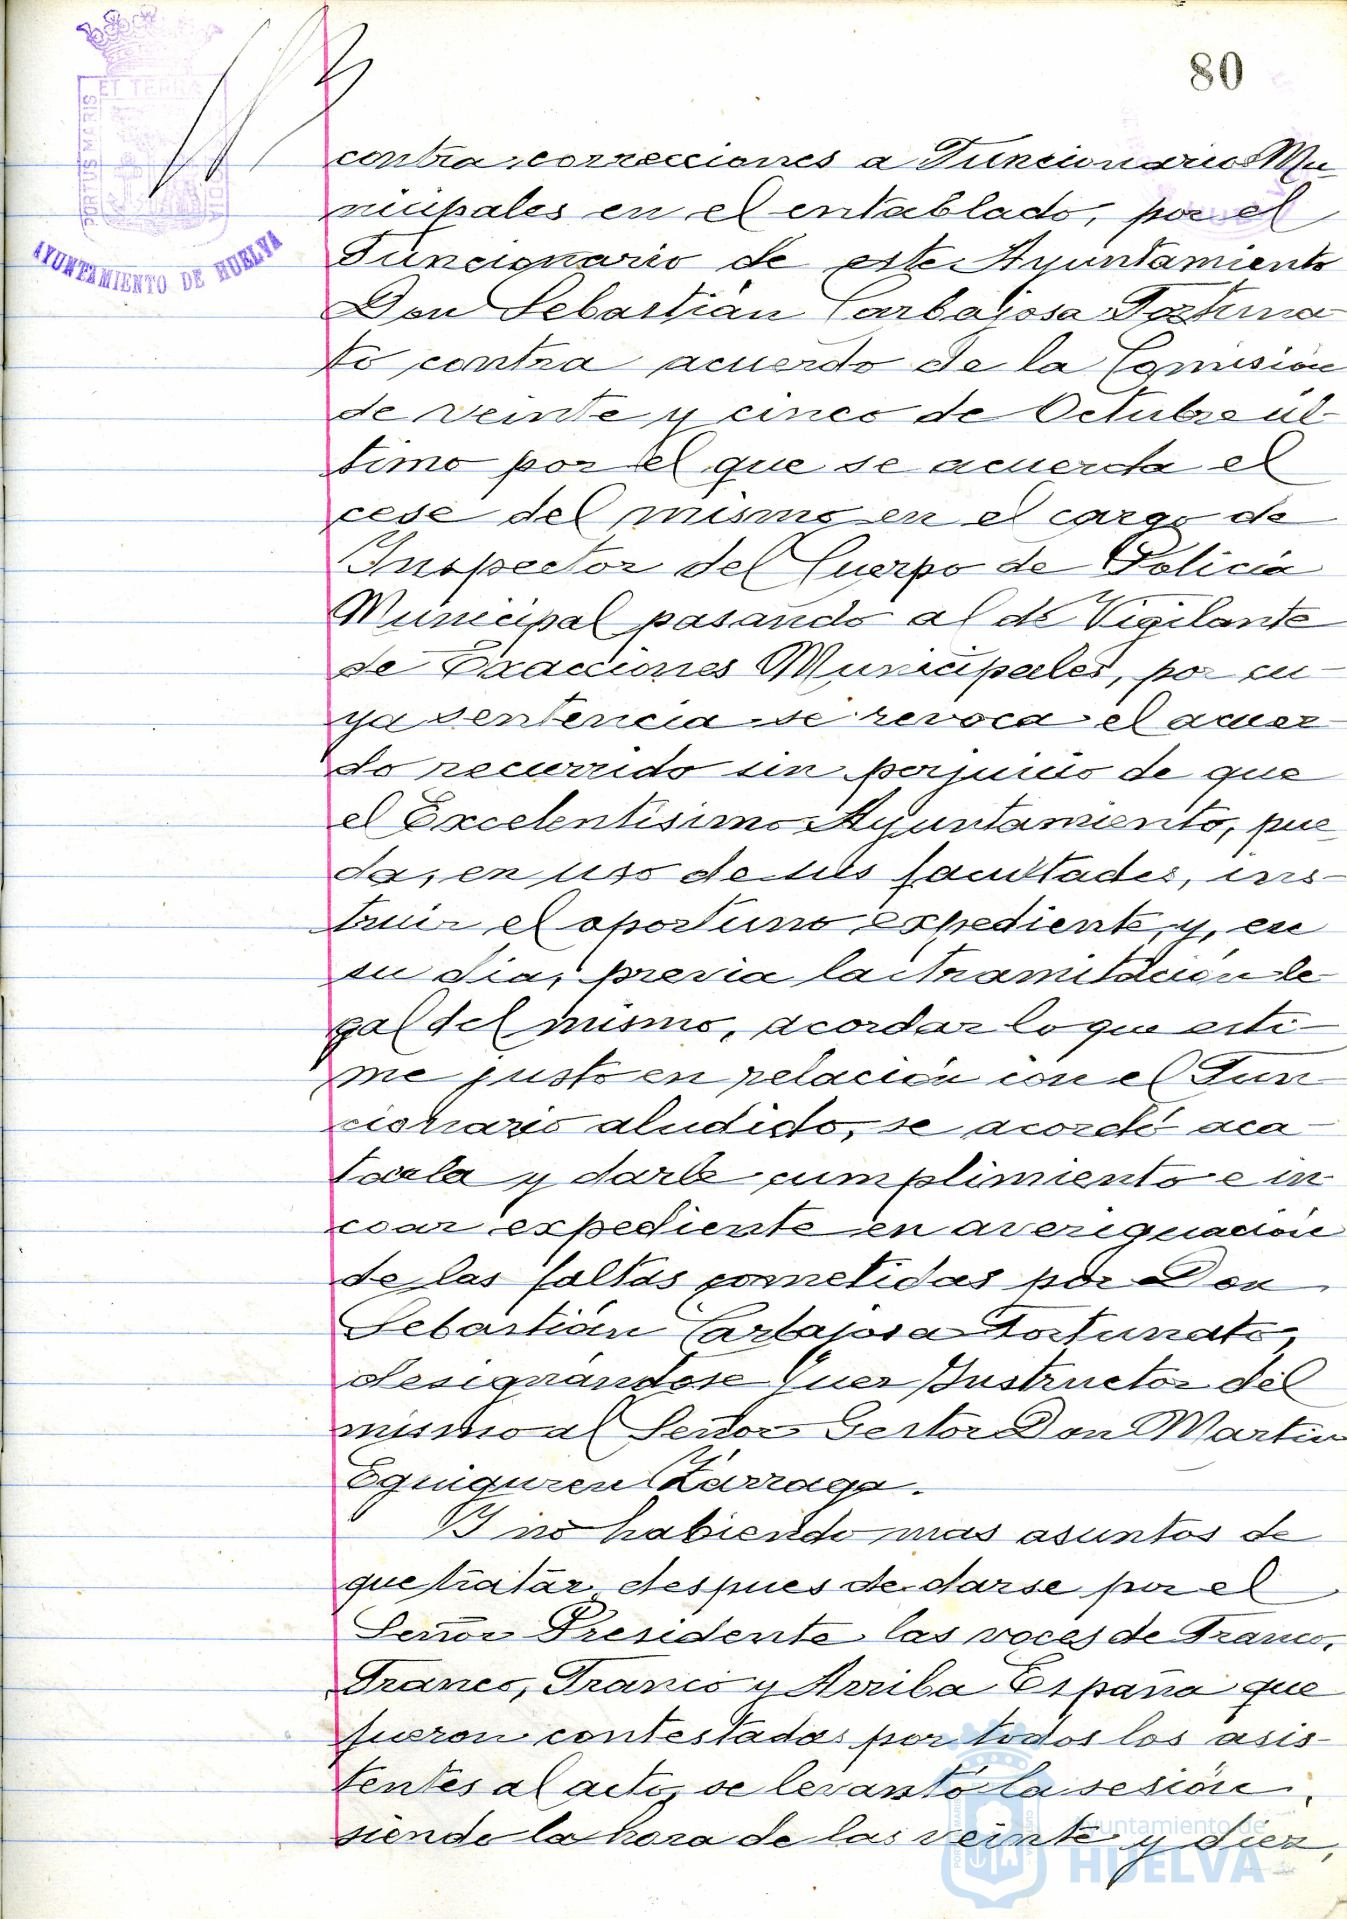 80
ET TERRAE
PORTUS MARIS
AYUNTAMIENTO DE HUELVA
contra correcciones a Funcionarios Mu-
nicipales en el entablado, por el
Funcionario de este Ayuntamiento
Don Sebastián Carbajosa Fortuna-
to contra acuerdo de la Comisión
de veinte y cinco de Octubre úl-
timo por el que se acuerda el
cese del mismo en el cargo de
Inspector del Cuerpo de Policía
Municipal pasando al de Vigilante
de Exacciones Municipales, por cu-
ya sentencia se revoca el acuer-
do recurrido sin perjuicio de que
el Excelentísimo Ayuntamiento, pue-
da, en uso de sus facultades, ins-
truir el oportuno expediente, y, en
su día, previa la tramitación le-
gal del mismo, acordar lo que esti-
me justo en relación con el Fun-
cionario aludido, se acordó aca-
tarla y darle cumplimiento e in-
coar expediente en averiguación
de las faltas cometidas por Don
Sebastián Carbajosa Fortunato,
designándose Juez Instructor del
mismo al Señor Gestor Don Martin
Eguiguren Zárraga.
Y no habiendo mas asuntos de
que tratar, despues de darse por el
Señor Presidente las voces de Franco,
Franco, Franco y Arriba España que
fueron contestadas por todos los asis-
tentes al acto, se levantó la sesión,
siendo la hora de las veinte y diez,
Ayuntamiento de
HUELVA